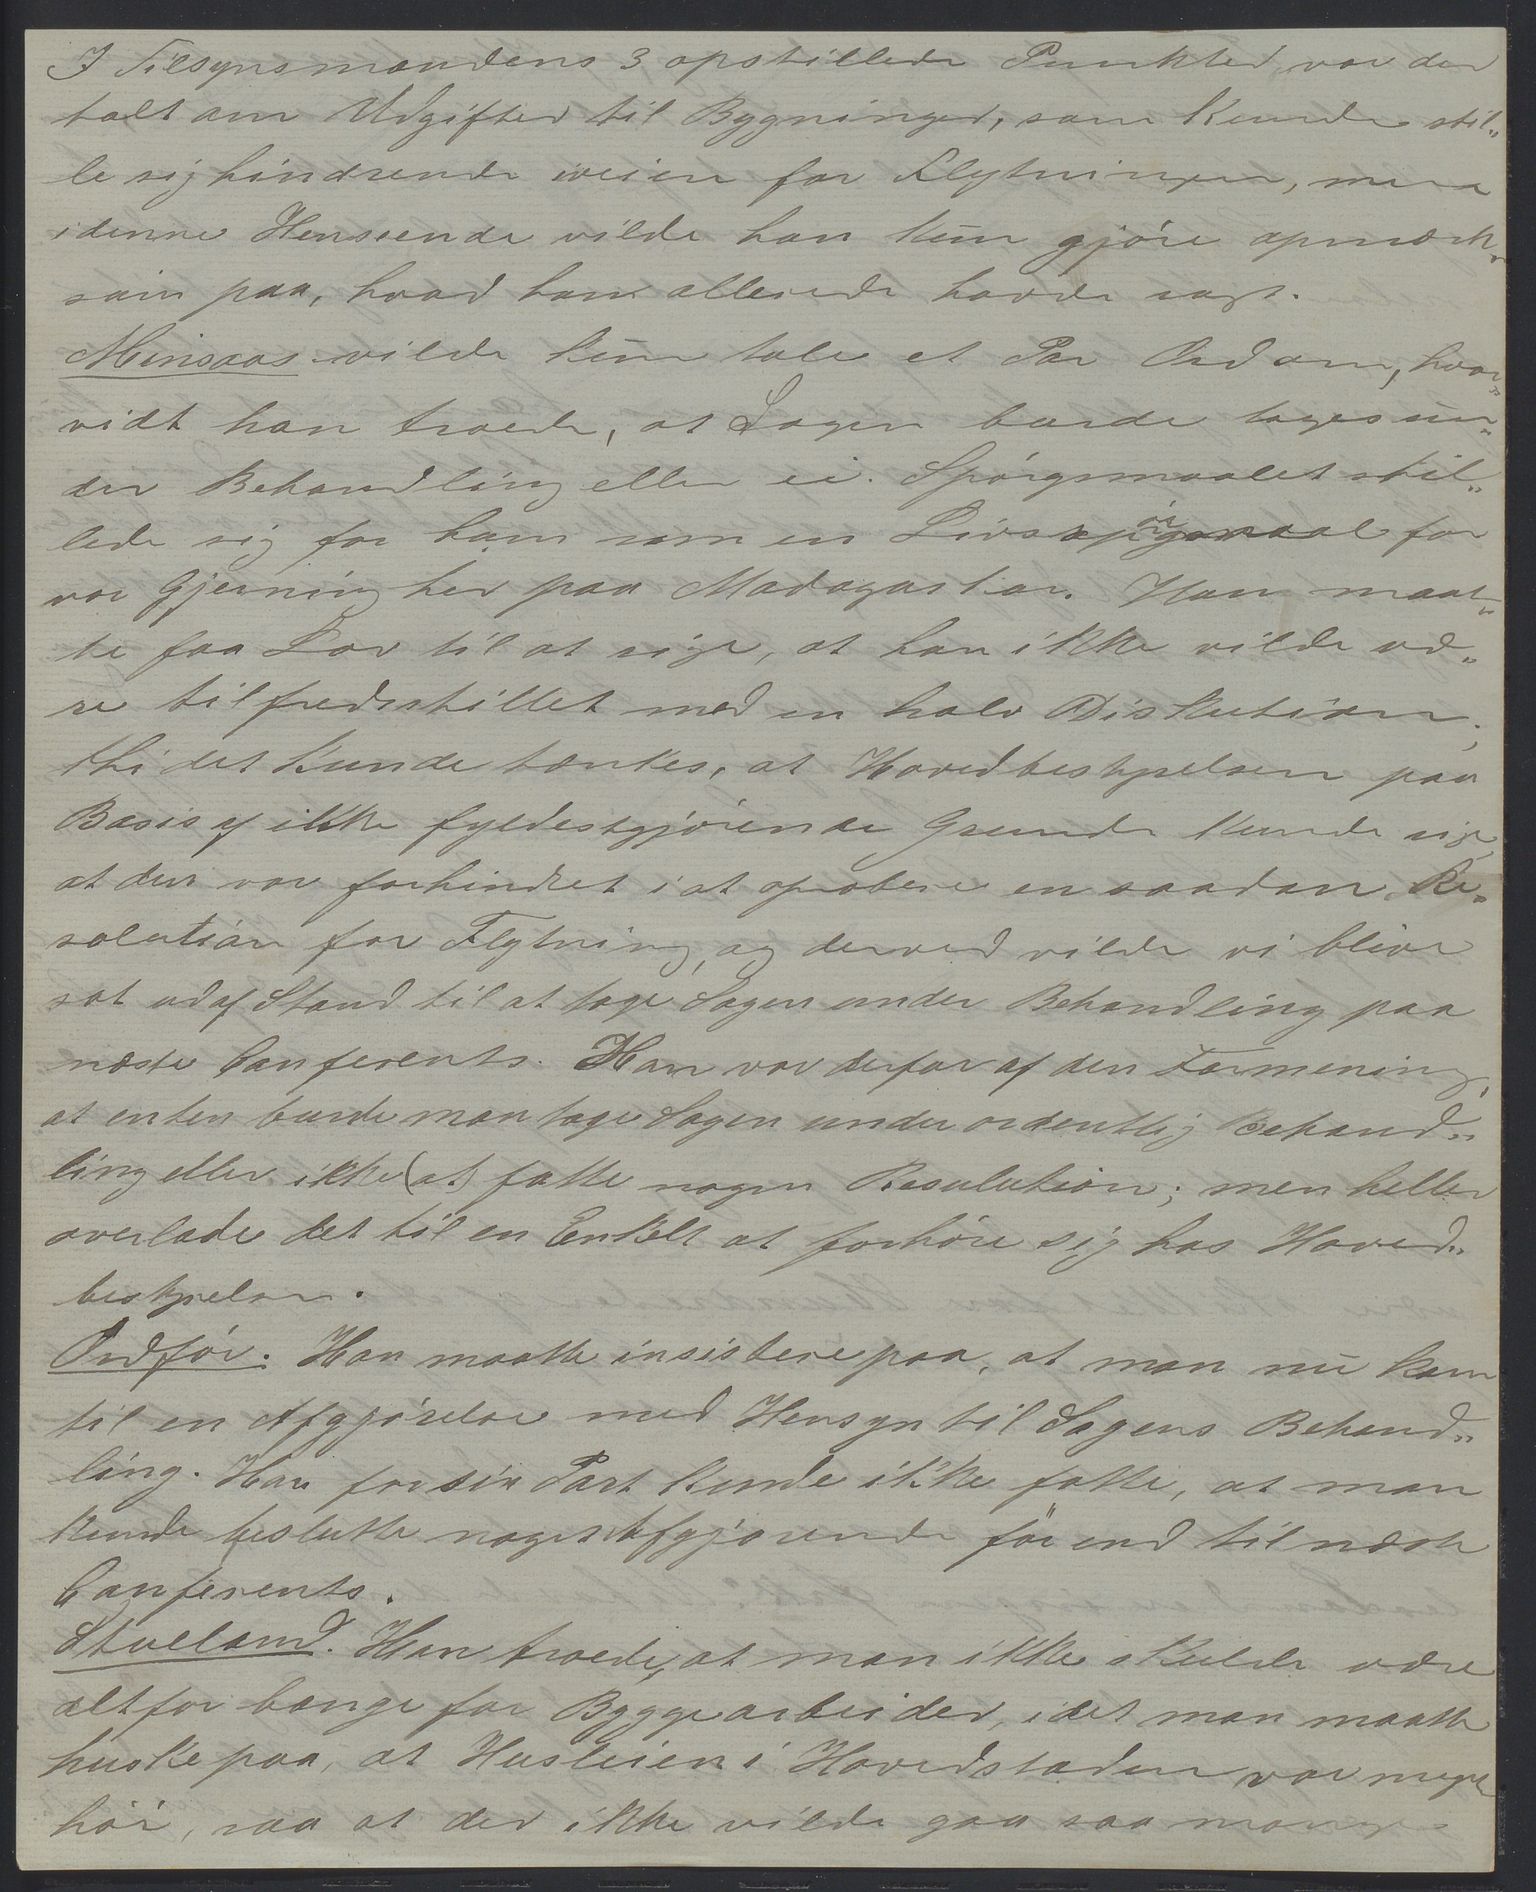 I Tilsynsmandens 3 opstillede Punkter var der
talt om Udgifter til Bygninger, som kunde stil„
le sig hindrende iveien for Flytningen, men
i denne Henseende vilde han kun gjöre opmærk„
som paa, hvad han allerede havde sagt.
Minsaas vilde kun tale et Par Ord om, hvor„
vidt han troede, at Sagen burde tages un„
der Behandling eller ei. Spörgsmaalet stil„
lede sig for ham som en Livsspörgsmaal for
vor Gjerning her paa Madagaskar. Han maat„
te faa Lov til at sige, at han ikke vilde væ„
re tilfredsstillet med en halv Diskution;
thi det kunde tænkes, at Hovedbestyrelsen paa
Basis af ikke fyldestgjörende Grunde kunde sige,
at den var forhindret i at aprobere en saadan Re„
solution for Flytning, og derved vilde vi blive
sat ud af Stand til at tage Sagen under Behandling paa
næste Conferents. Han var derfor af den Formening,
at enten burde man tage Sagen under ordentlig Behand„
ling eller ikke (at) fatte nogen Resulution; men heller
overlade det til en Enkelt at forhöre sig hos Hoved„
bestyrelsen.
Ordför. Han maatte insistere paa, at man nu kom
til en Afgjörelse med Hensyn til Sagens Behand„
ling. Han for sin Part kunde ikke fatte, at man
kunde beslutte noget Afgjörende för end til næste
Conferents.
Stueland. Han troede, at man ikke skulde være
altfor bange for Byggearbeider, idet man maatte
huske paa, at Husleien i Hovedstaden var meget
höi, saa at der ikke vilde gaa saa mange